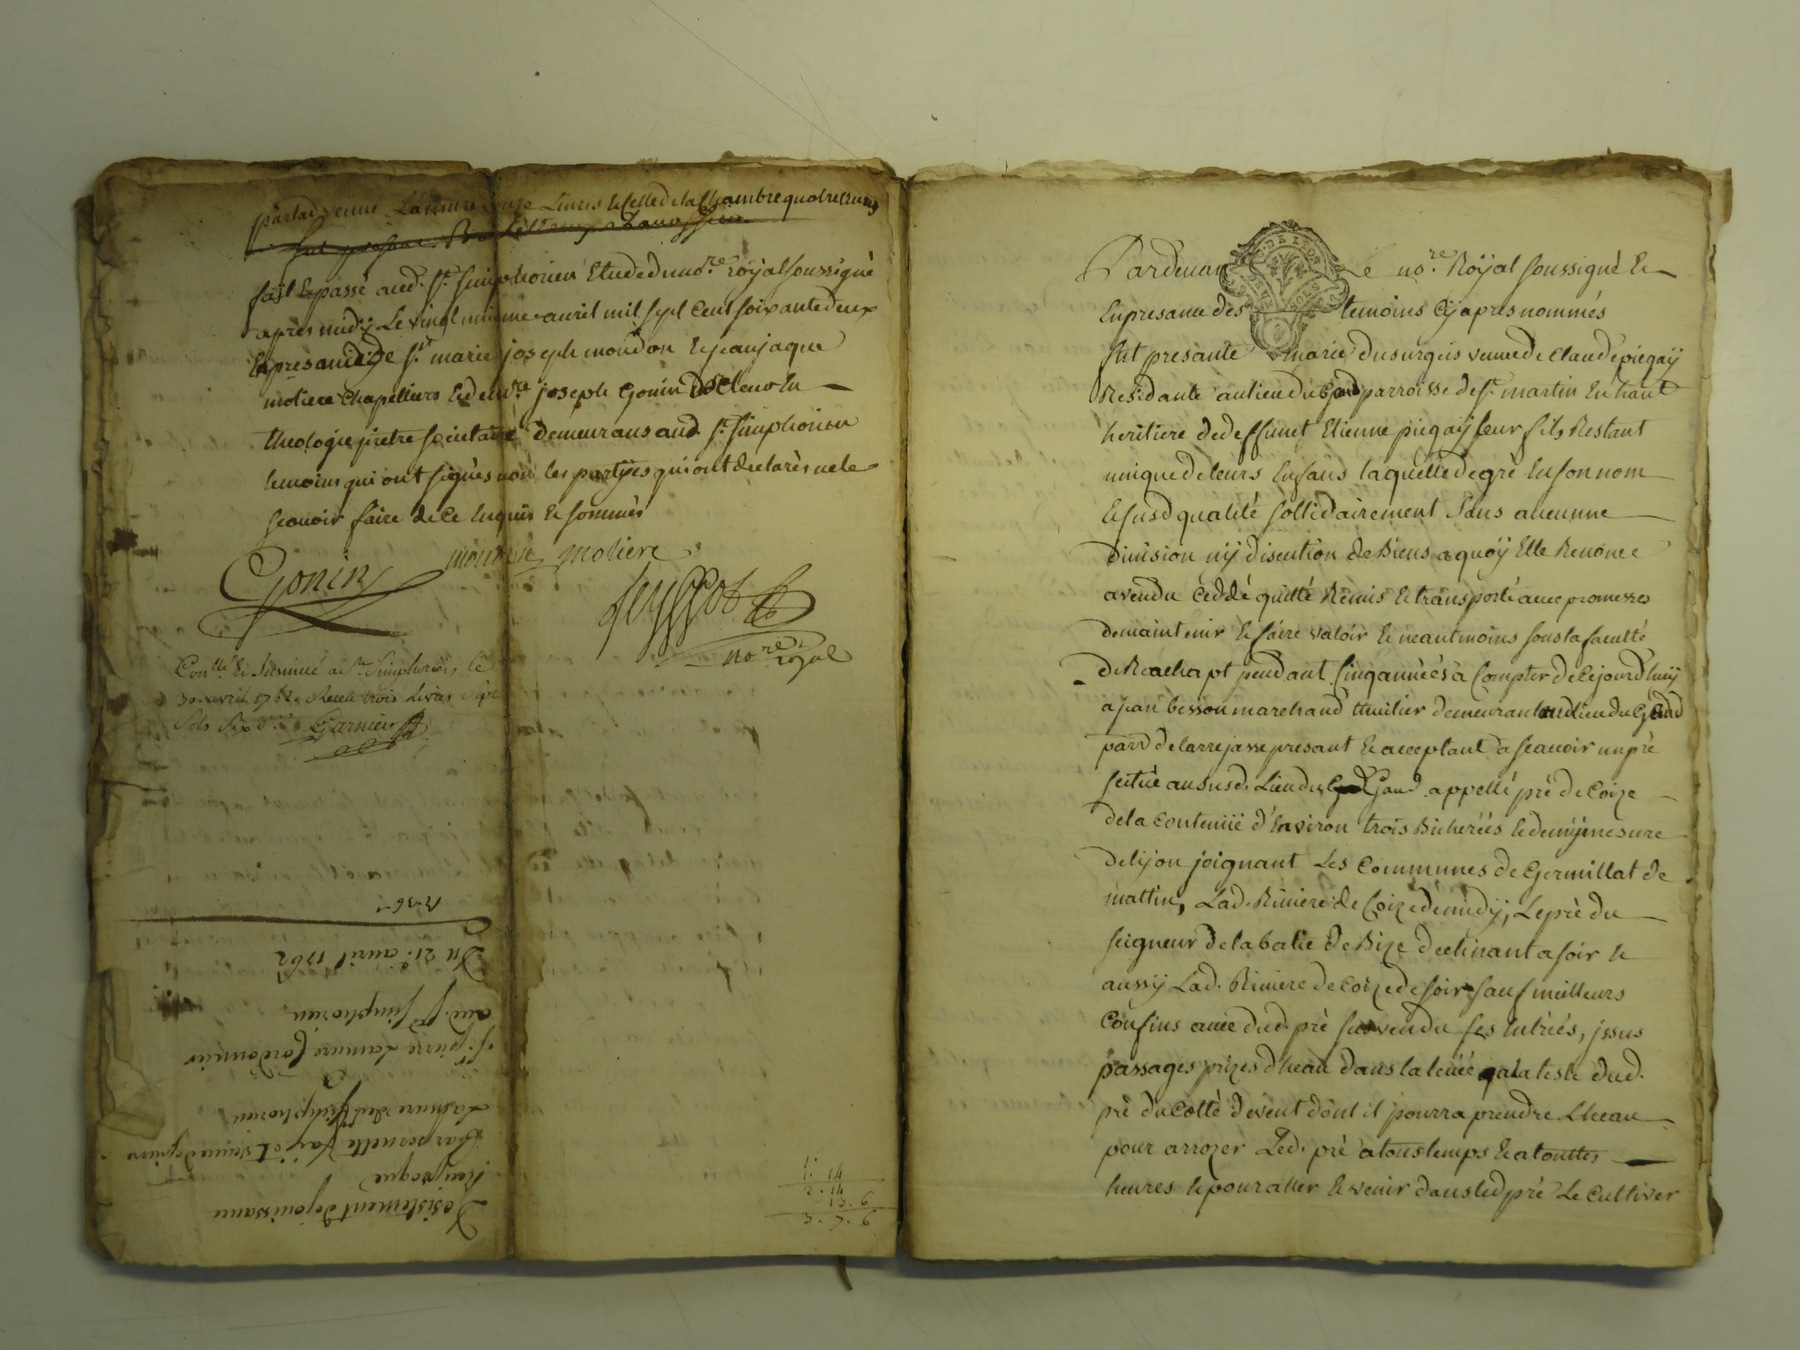 par lad. venue Lamure onze Livres Et celle de la Chambre quatre Livres
fait Et passé aud. St. Simphorien Etude du no.re royal soussigné
après midy Le vingt unième avril mil sept Cent soixante deux
En presance de Sr. marie joseph moudon Et jean jaque
moliere chapelliers Et de m.re joseph Gonin bachelier en
theologie pretre societaire demeurans aud. St. Simphorien
temoins qui ont signés non les partyes qui ont declarés ne le
scavoir faire de ce Enquis Et sommés
Gonin
moudon moliere
no.re royal
Con.llé Et Insinué a St. Simphorien le
30. avril 1762. Receu trois livres sept
sols six d.rs Garnier
Desistement de jouissance
reciproque
Par pernette veuve de pierre
Lamure de St. Simphorien
Sr. pierre Lamure Cordonnier
aud. St. Simphorien
Du 21.e avril 1762
1: 14
2. 14
13. 6
3. 7. 6
Pardevant Le no.re Royal soussigné Et
En presance des temoins Cy apres nommés
fut presante marie dusurgeis veuve de Claude piegaÿ
Residante au lieu du Gand parroisse de St. martin En haut
heritiere de deffunct Etienne piegaÿ leur fils Restant
unique de leurs Enfans laquelle de gré En son nom
Et susd. qualité sollidairement sans aucunne
division nÿ discution de Biens a quoÿ Elle Renonce
a vendu Ceddé quitté Remis Et transporté avec promesses
de maintenir Et faire valoir Et neantmoins sous la faculté
de Reachapt pendant Cinq années à Compter de Ce jourd'huy
a jean besson marchand thuilier demeurant audt lieu du Gand
parr de larrejasse presant Et acceptant a scavoir un pré
scitué au susd. Lieu du Gand appellé pré de Coize
de la Contenüe d'Environ trois Bicherées Et demÿ mesure
de lÿon joignant Les Communes de Germillat de
mattin, Lad. Riviere de Coize de midÿ, Le pré du
seigneur de la batie de Bize declinant a soir Et
aussÿ Lad. Riviere de Coize de soir sauf meilleurs
Confins avec dud. pré sus vendu ses Entrées, issus
passages prizes d'heau dans la levée qui a la teste dud.
pré du Cotté de vent dont il pourra prendre L'heau
pour arrozer Led. pré a tous temps Et a touttes
heures Et pour aller Et venir dans led pré Le Cultiver